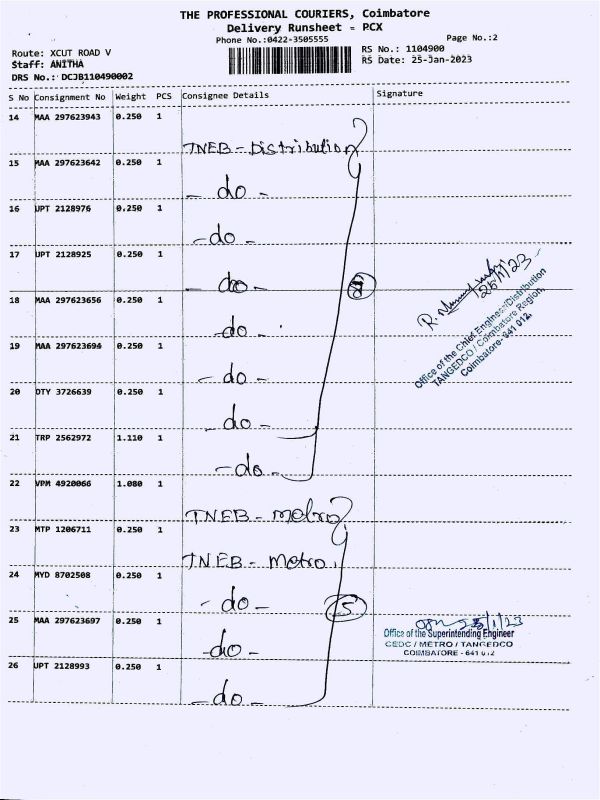 THE PROFESSIONAL COURIERS, Coimbatore
Delivery Runsheet - PCX
Phone No.:0422-3505555
Page No.:2
Route: XCUT ROAD V
RS No.: 1104900
Staff: ANITHA
RS Date: 25-Jan-2023
DRS No.: DCJB110490002
S No Consignment No Weight PCS Consignee Details Signature
14 MAA 297623943 0.250 1
TNEB - Distribution
15 MAA 297623642 0.250 1
- do -
16 UPT 2128976 0.250 1
- do -
17 UPT 2128925 0.250 1
- do -
18 MAA 297623656 0.250 1
- do -
19 MAA 297623694 0.250 1
- do -
20 DTY 3726639 0.250 1
- do -
21 TRP 2562972 1.110 1
- do -
22 VPM 4920066 1.080 1
TNEB - Metro
23 MTP 1206711 0.250 1
TNEB - Metro
24 MYD 8702508 0.250 1
- do -
25 MAA 297623697 0.250 1
- do -
26 UPT 2128993 0.250 1
- do -
5
25/1/23
Office of the Chief Engineer/Distribution
TANGEDCO / Coimbatore Region,
Coimbatore- 641 012.
25/1/23
Office of the Superintending Engineer
CEDC / METRO / TANGEDCO
COIMBATORE - 641 012